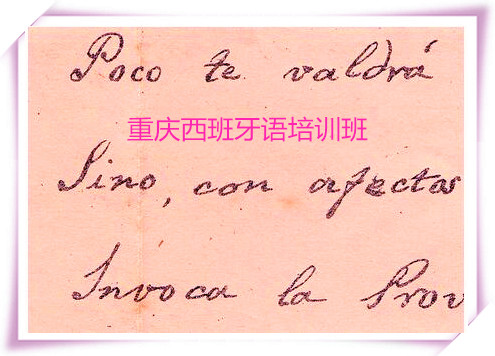 Poco te valdrá
重庆西班牙语培训班
Sino, con afectos
Invoca la Prov